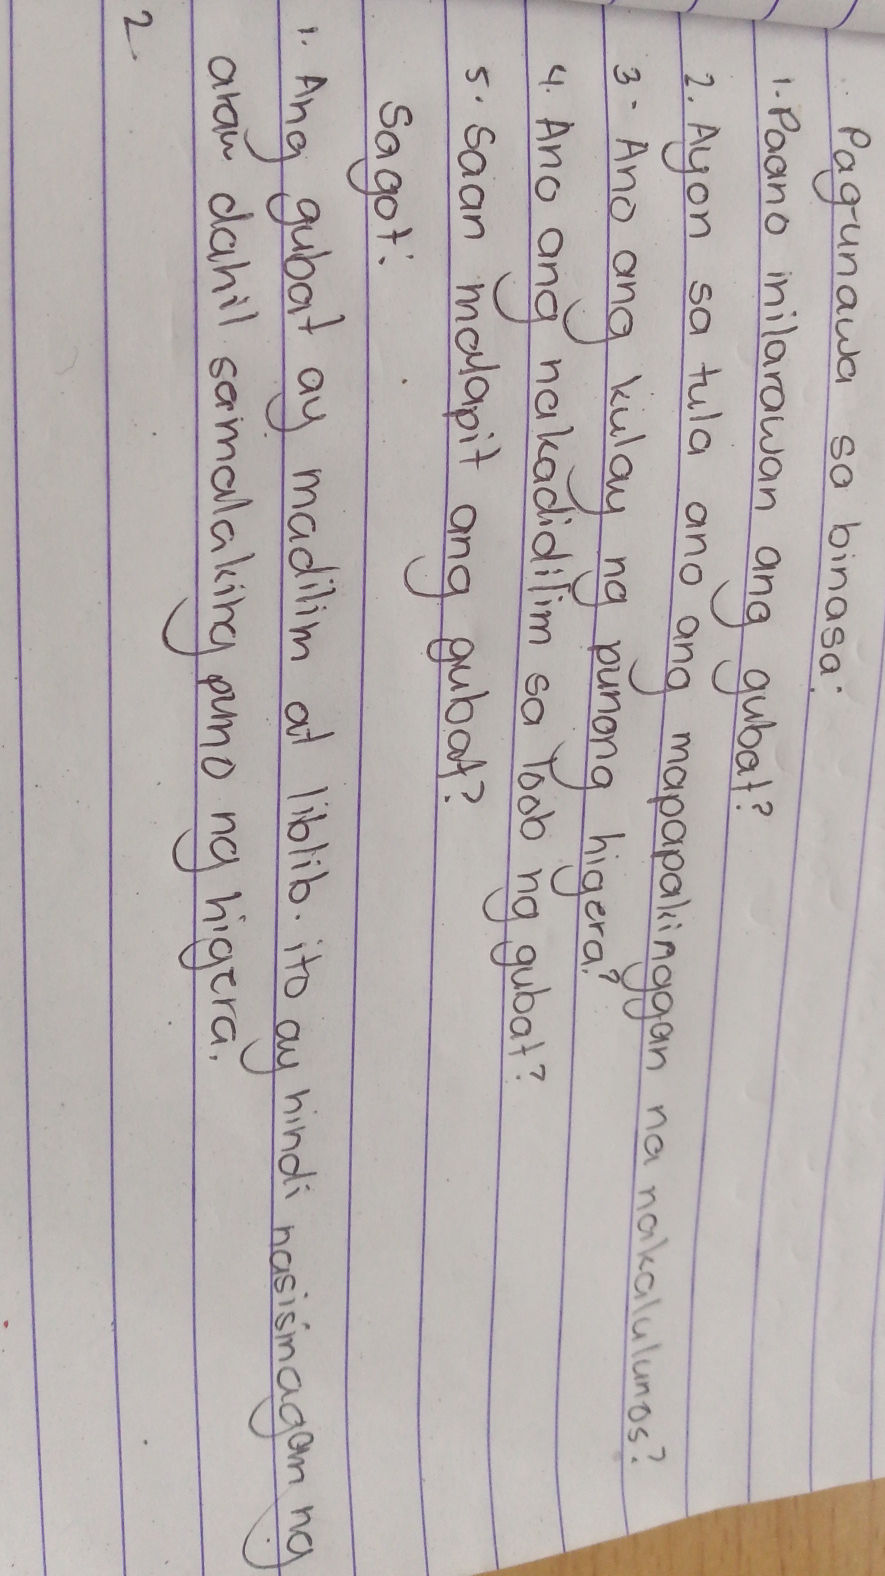 Pag-unawa sa binasa:
1. Paano inilarawan ang gubat?
2. Ayon sa tula ano ang mapapakinggan na nakalulunos?
3. Ano ang kulay ng punong higera?
4. Ano ang nakadidilim sa loob ng gubat?
5. Saan malapit ang gubat?
Sagot:
1. Ang gubat ay madilim at liblib. ito ay hindi nasisinagam ng
araw dahil samalaking puno ng higera.
2.